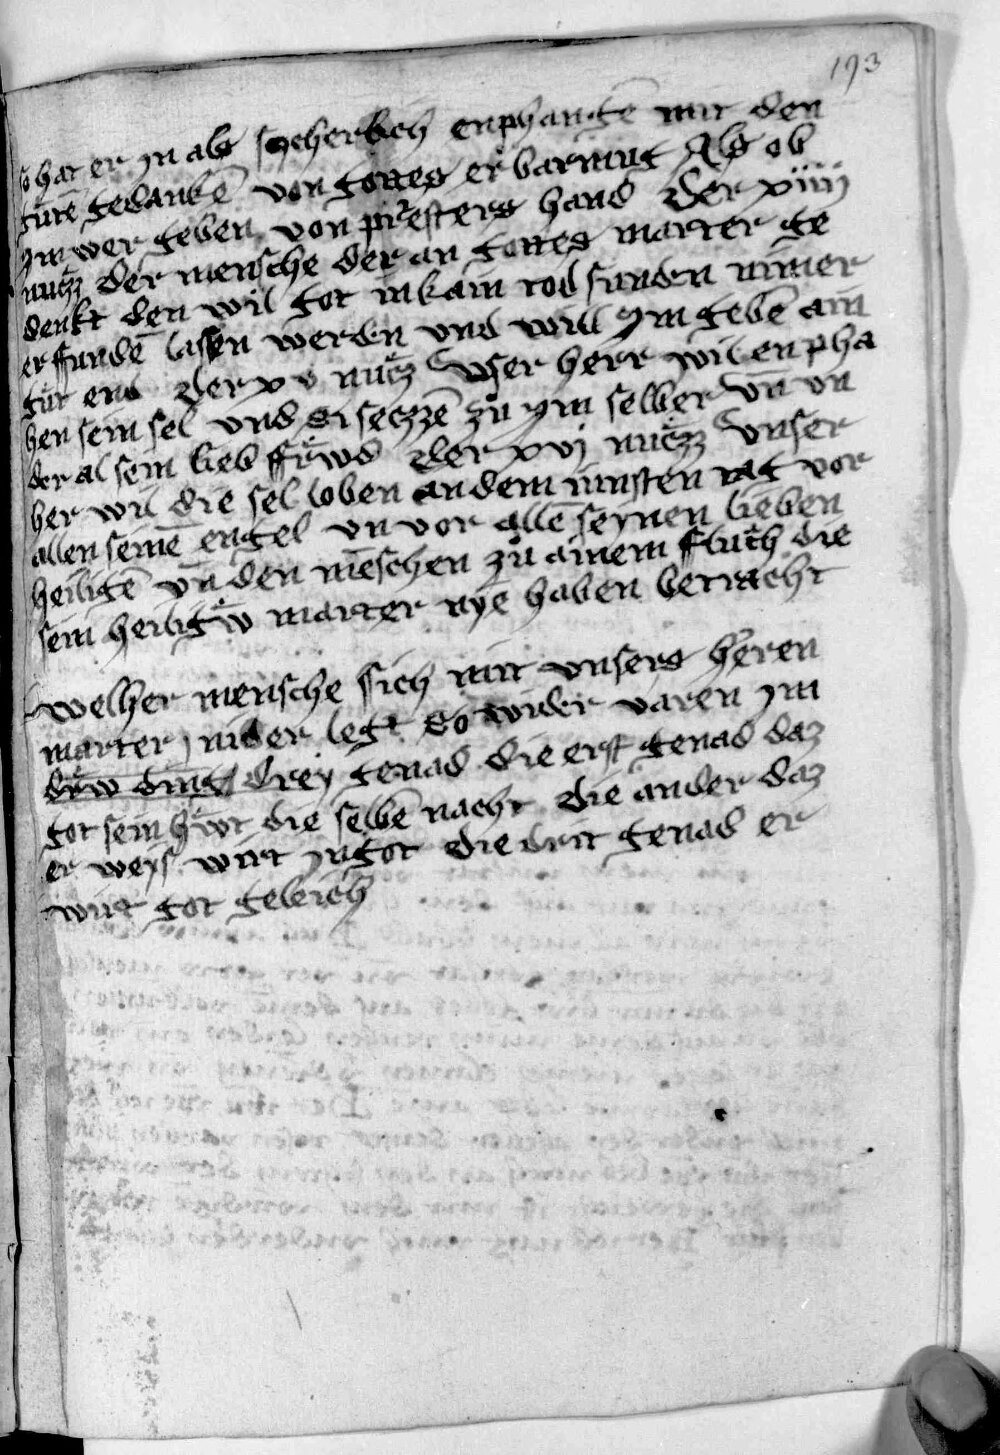 193
so hat er jn als sicherlich enphangē mit den
gutē gedankē von gottes erbarmug Als ob
ym wer geben von priesters hand Der xiiij
nucz der mensche der an gottes marter ge
denkt den wil got in kain tod sunden nimer
er ffundē lassen werden vnd will ym gebē ain
gut end Der xv nucz vnser herr wil enpha
hen sein sel vnd si seczzē zů ym selber vn̄ vn
der al sein lieb ffrẅd Der xvj nuczz vnser
her wil die sel loben an dem iunsten tag vor
allen seinē engel vn̄ vor allē seynen lieben
heiligē vn̄ den mēschen zů ainem ffluch die
sein heiligẅ marter nye haben betracht
Welher mensche sich mit vnsers herren
marter nider legt So wider varen ym
drẅ ding drey genad die erst genad daz
got sein hẅt die selbē nacht die ander daz
er weys wirt jn got die drit genad er
wirt got geleich